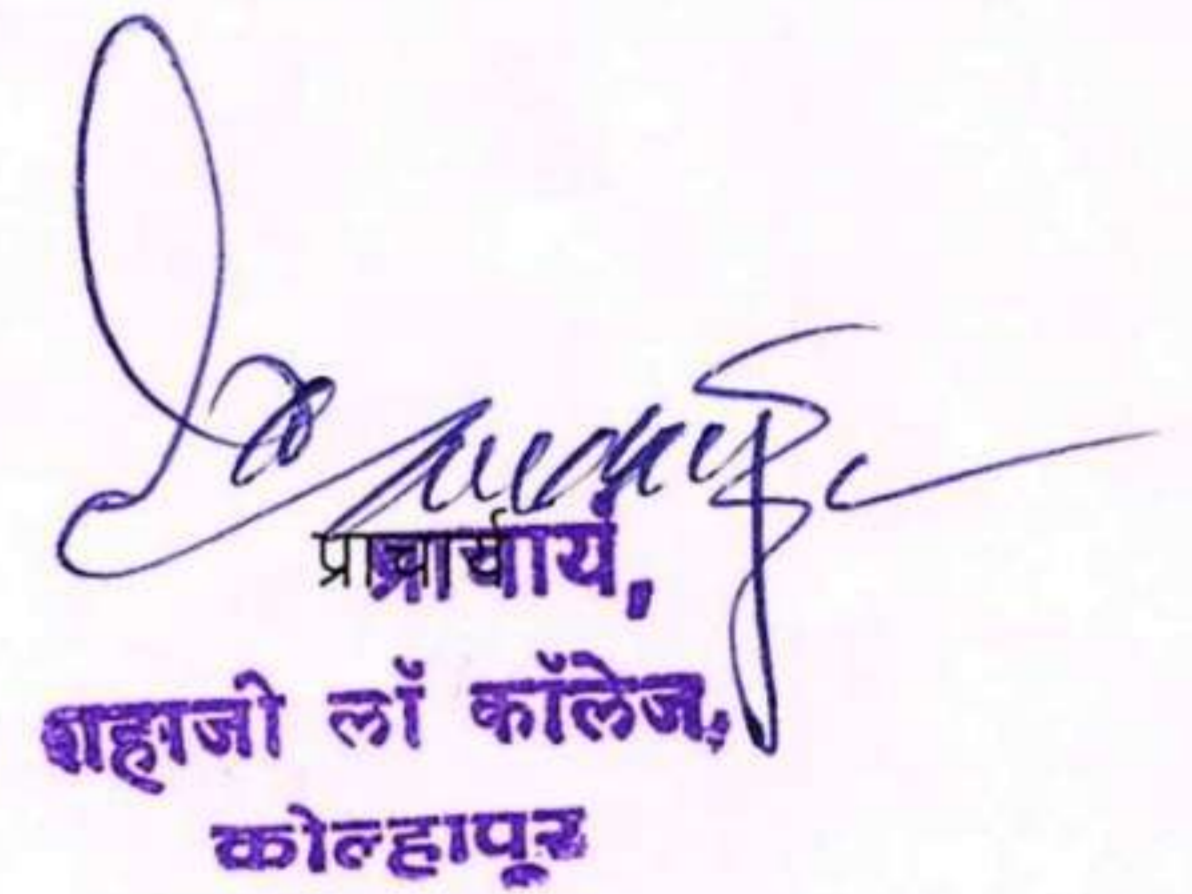 प्राचार्य
प्राचार्य,
शहाजी लॉ कॉलेज,
कोल्हापूर